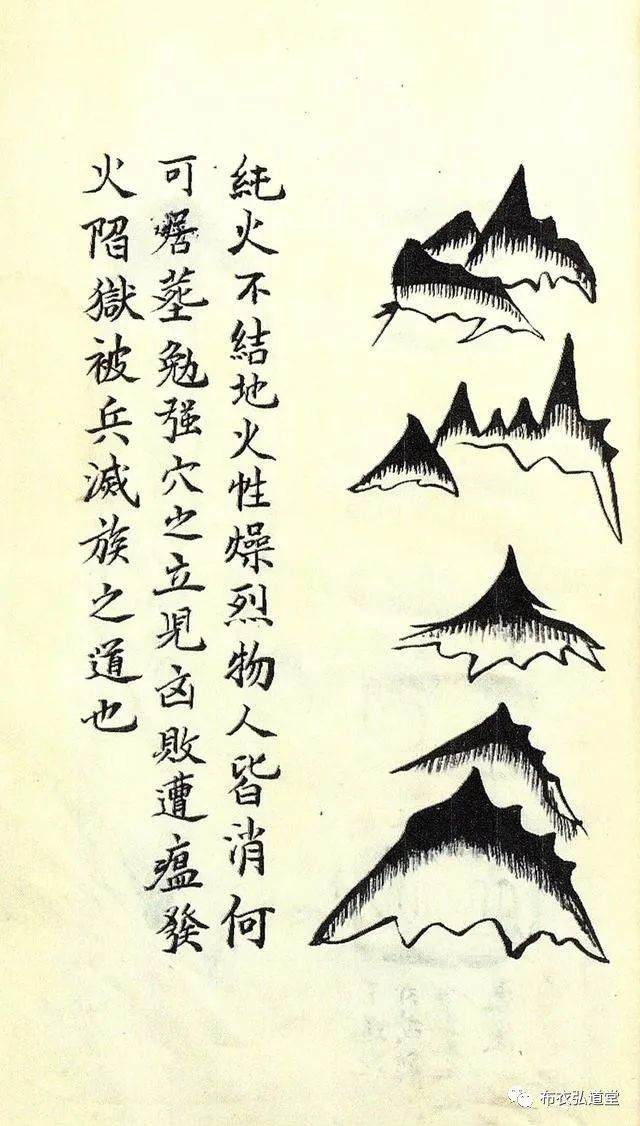 純火不結地火性燥烈物人皆消何
可居塟勉强穴之立見凶敗遭瘟發
火陷獄被兵滅族之道也
布衣弘道堂